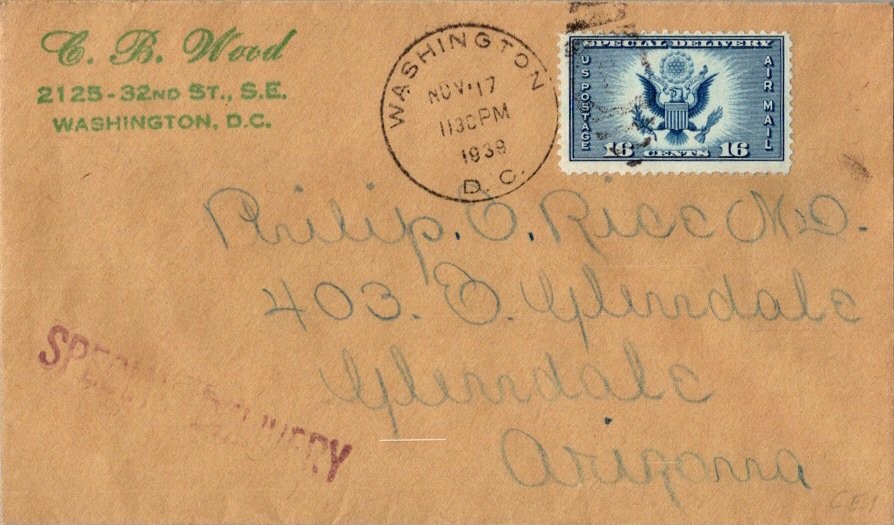 C. B. Wood
2125-32ND ST., S.E.
WASHINGTON, D.C.
WASHINGTON
NOV 17
1130PM
1939
D. C.
SPECIAL DELIVERY
US POSTAGE
AIR MAIL
16 CENTS 16
Philip. O. Rice M.D.
403. E. Glenndale
Glenndale
Arizona
SPECIAL DELIVERY